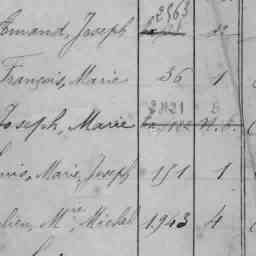 Amand, Joseph 2363
François, Marie 36 1
Joseph, Marie 2821 6
Louis, Marie, Joseph 151 1
Julien, Mie, Michel 1943 4